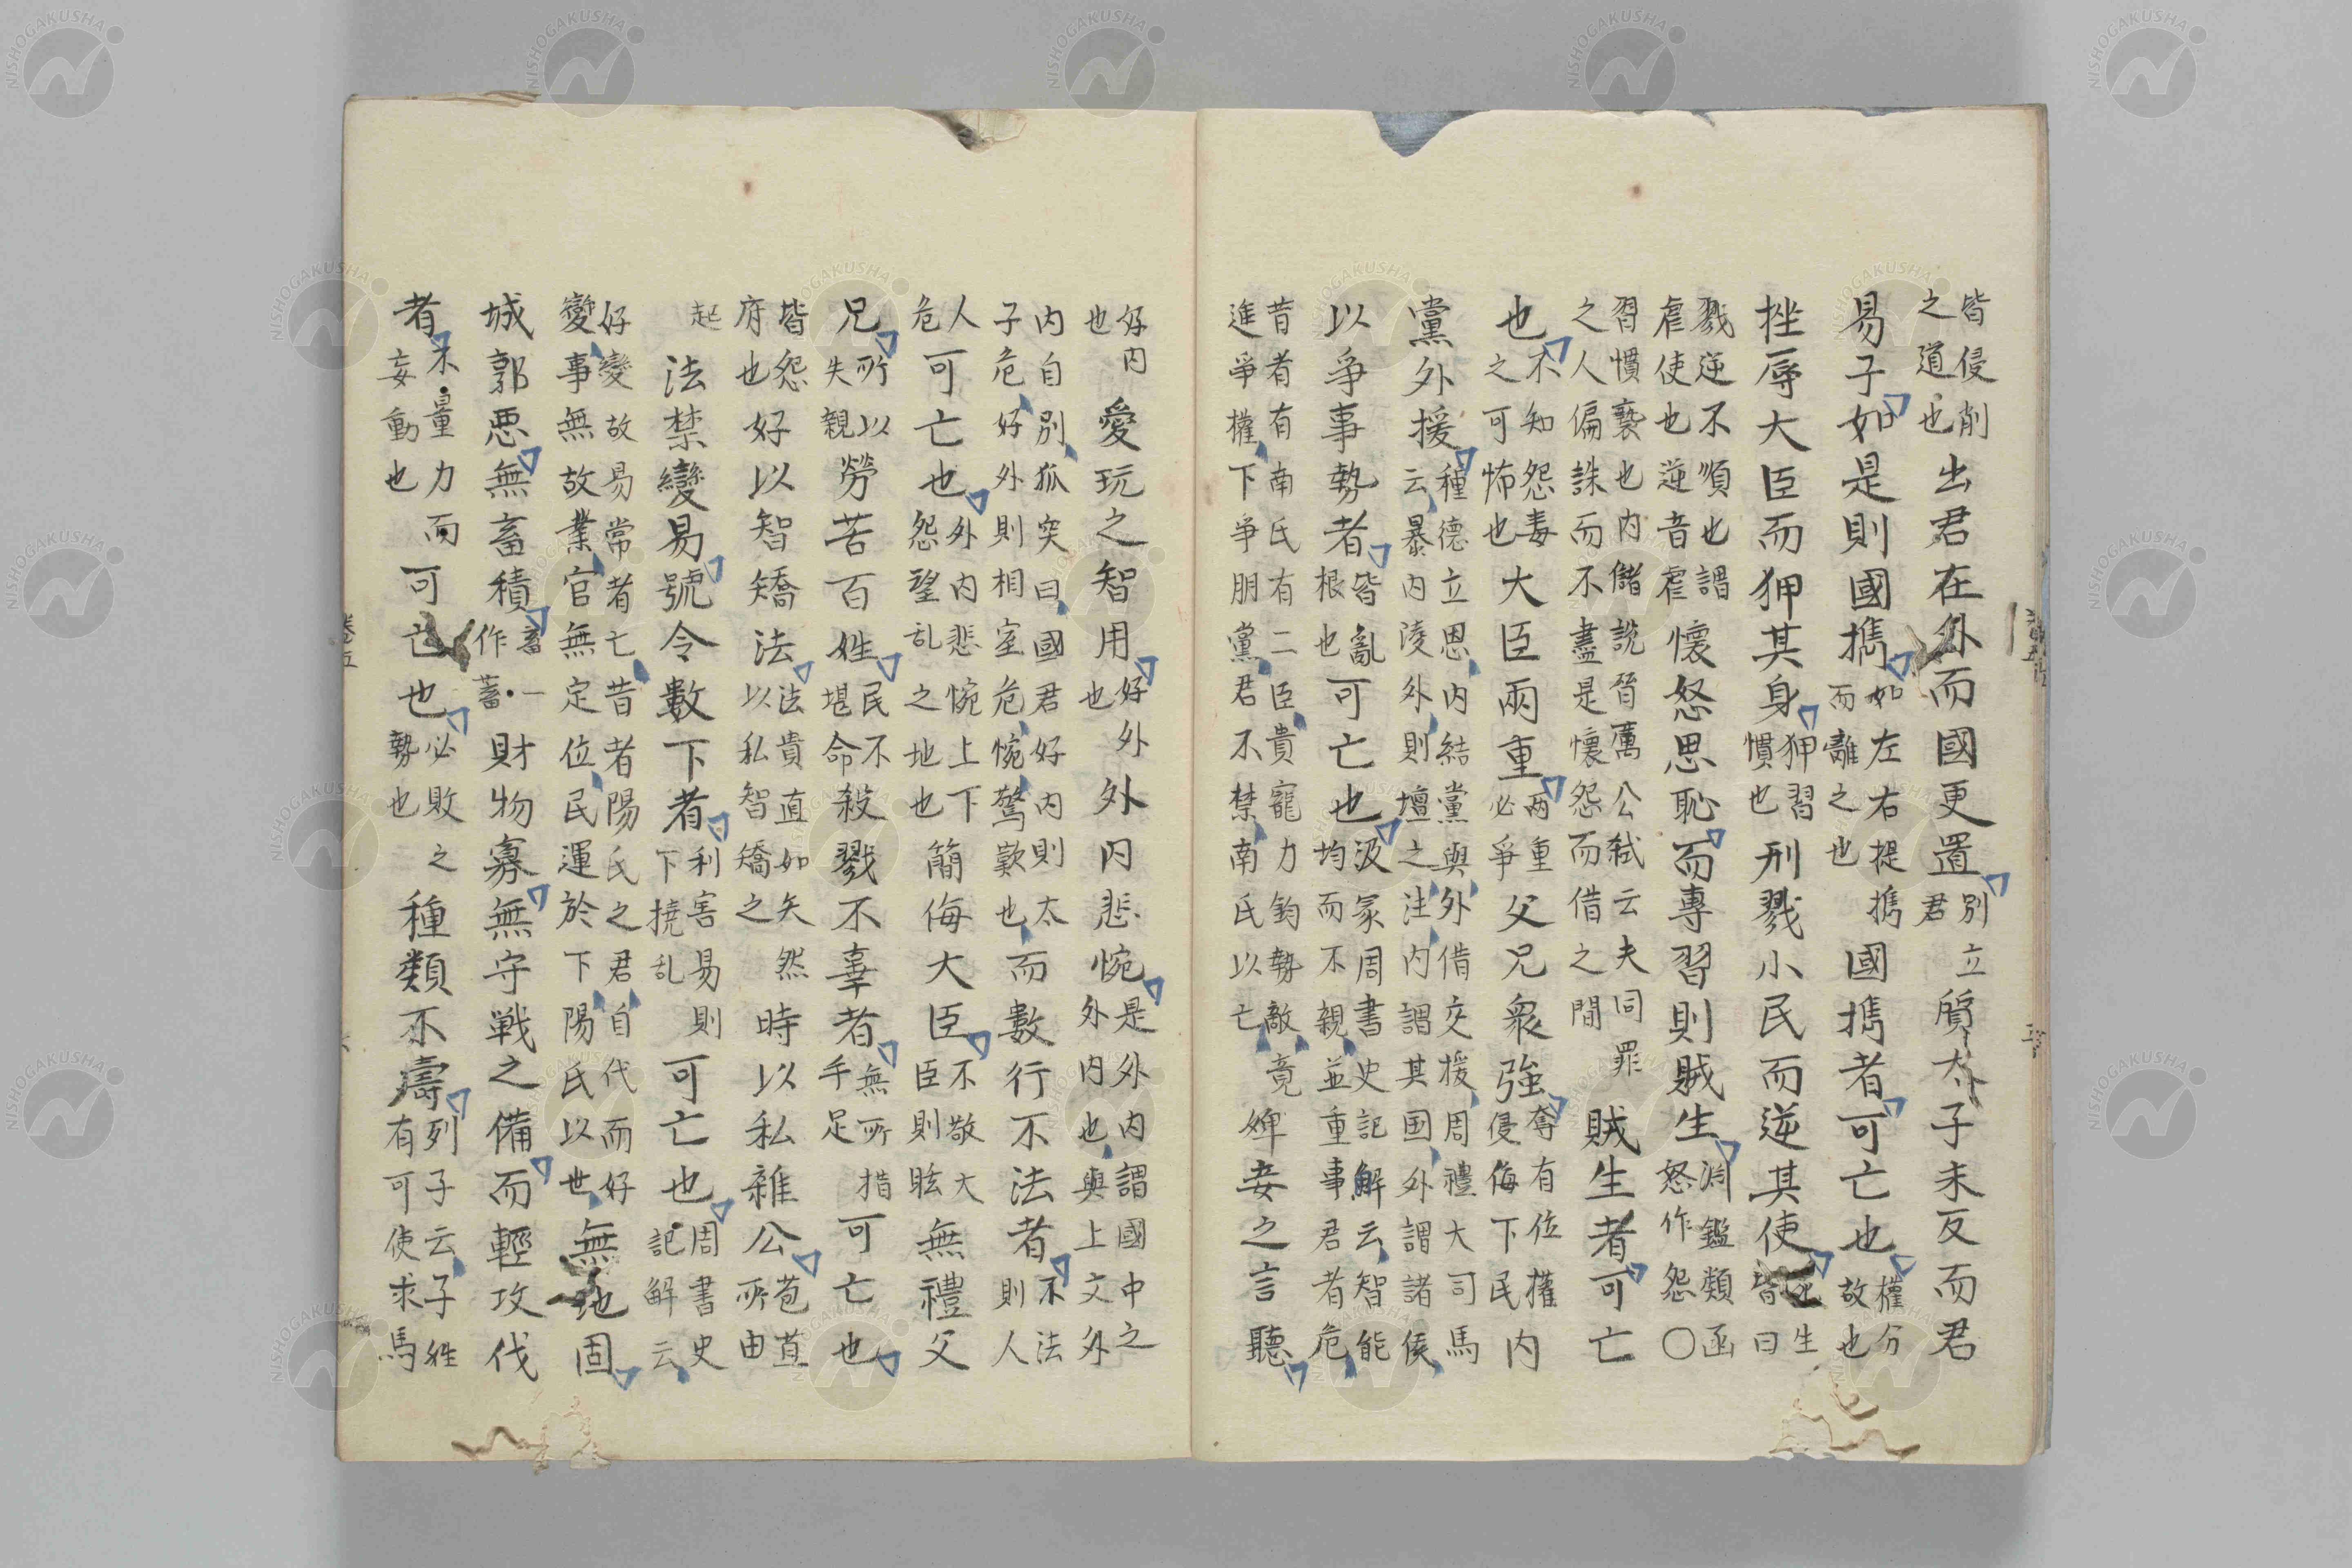 皆侵削之道也出君在外而國更置別立君質太子未反而君
易子如是則國攜如左右提攜而離之也國攜者可亡也權分故也
挫辱大臣而狎其身狎習慣也刑戮小民而逆其使生皆曰
戮逆不順也謂虐使也逆音虐懷怒思恥而專習則賊生淵鑑類函怒作怨〇
習慣褻也内儲說晉厲公弒云夫同罪之人偏誅而不盡是懷怨而借之間賊生者可亡
也不知怨毒之可怖也大臣兩重两重必爭父兄衆強奪有位權侵侮下民内
黨外援種德立恩内結黨與外借交援周禮大司馬云暴内陵外則壇之注内謂其国外謂諸侯
以爭事勢者皆亂根也可亡也汲冢周書史記解云智能均而不親並重事君者危
昔者有南氏有二臣貴寵力鈞勢敵竟進爭權下争朋黨君不禁南氏以亡婢妾之言聽
好内也愛玩之智用好外也外内悲惋是外内謂國中之外内也與上文外
内自別狐突曰國君好内則太子危好外則相室危惋驚歎也而數行不法者不法則人
人危可亡也外内悲惋上下怨望乱之地也簡侮大臣不敬大臣則眩無禮父
兄所以失親勞苦百姓民不堪命殺戮不辜者無所措手足可亡也
皆怨府也好以智矯法法貴直如矢然以私智矯之時以私雜公苞苴所由
起法禁變易號令數下者利害易則下撓乱可亡也周書史記解云
好變故易常者亡昔者陽氏之君自代而好變事無故業官無定位民運於下陽氏以世無地固
城郭悪無畜積畜一作蓄財物寡無守戦之備而輕攻伐
者不量力而妄動也可亡也必敗之勢也種類不壽列子云子姓有可使求馬